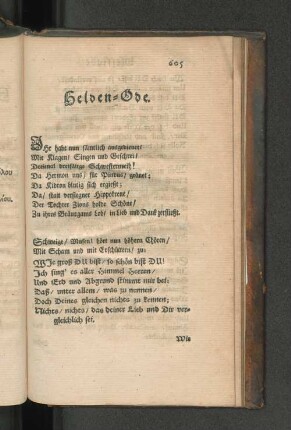 605
Helden-Ode.
IHr habt nun sämtlich ausgedienet/
Mit Klagen/ Singen und Geschrey/
Da Hermon uns/ für Pindus/ grünet;
Da Kidron blutig sich ergießt;
Da/ statt versiegner Hippokrene/
Der Tochter Zions holde Schöne/
In ihres Bräutgams Lob/ in Lied und Danck zerfließt.
Schweigt/ Musen/ hört nun höhern Chören/
Mit Scham und mit Erschüttern/ zu:
Wie groß DU bist/ so schön bist DU!
Ich sing' es aller Himmel Heeren/
Und Erd und Abgrund stimmt mit bei:
Daß/ unter allem/ was zu nennen/
Doch Deines gleichen nichts zu kennen;
Nichts/ nichts/ das deiner Lieb und Dir ver-
gleichlich sei.
Wie